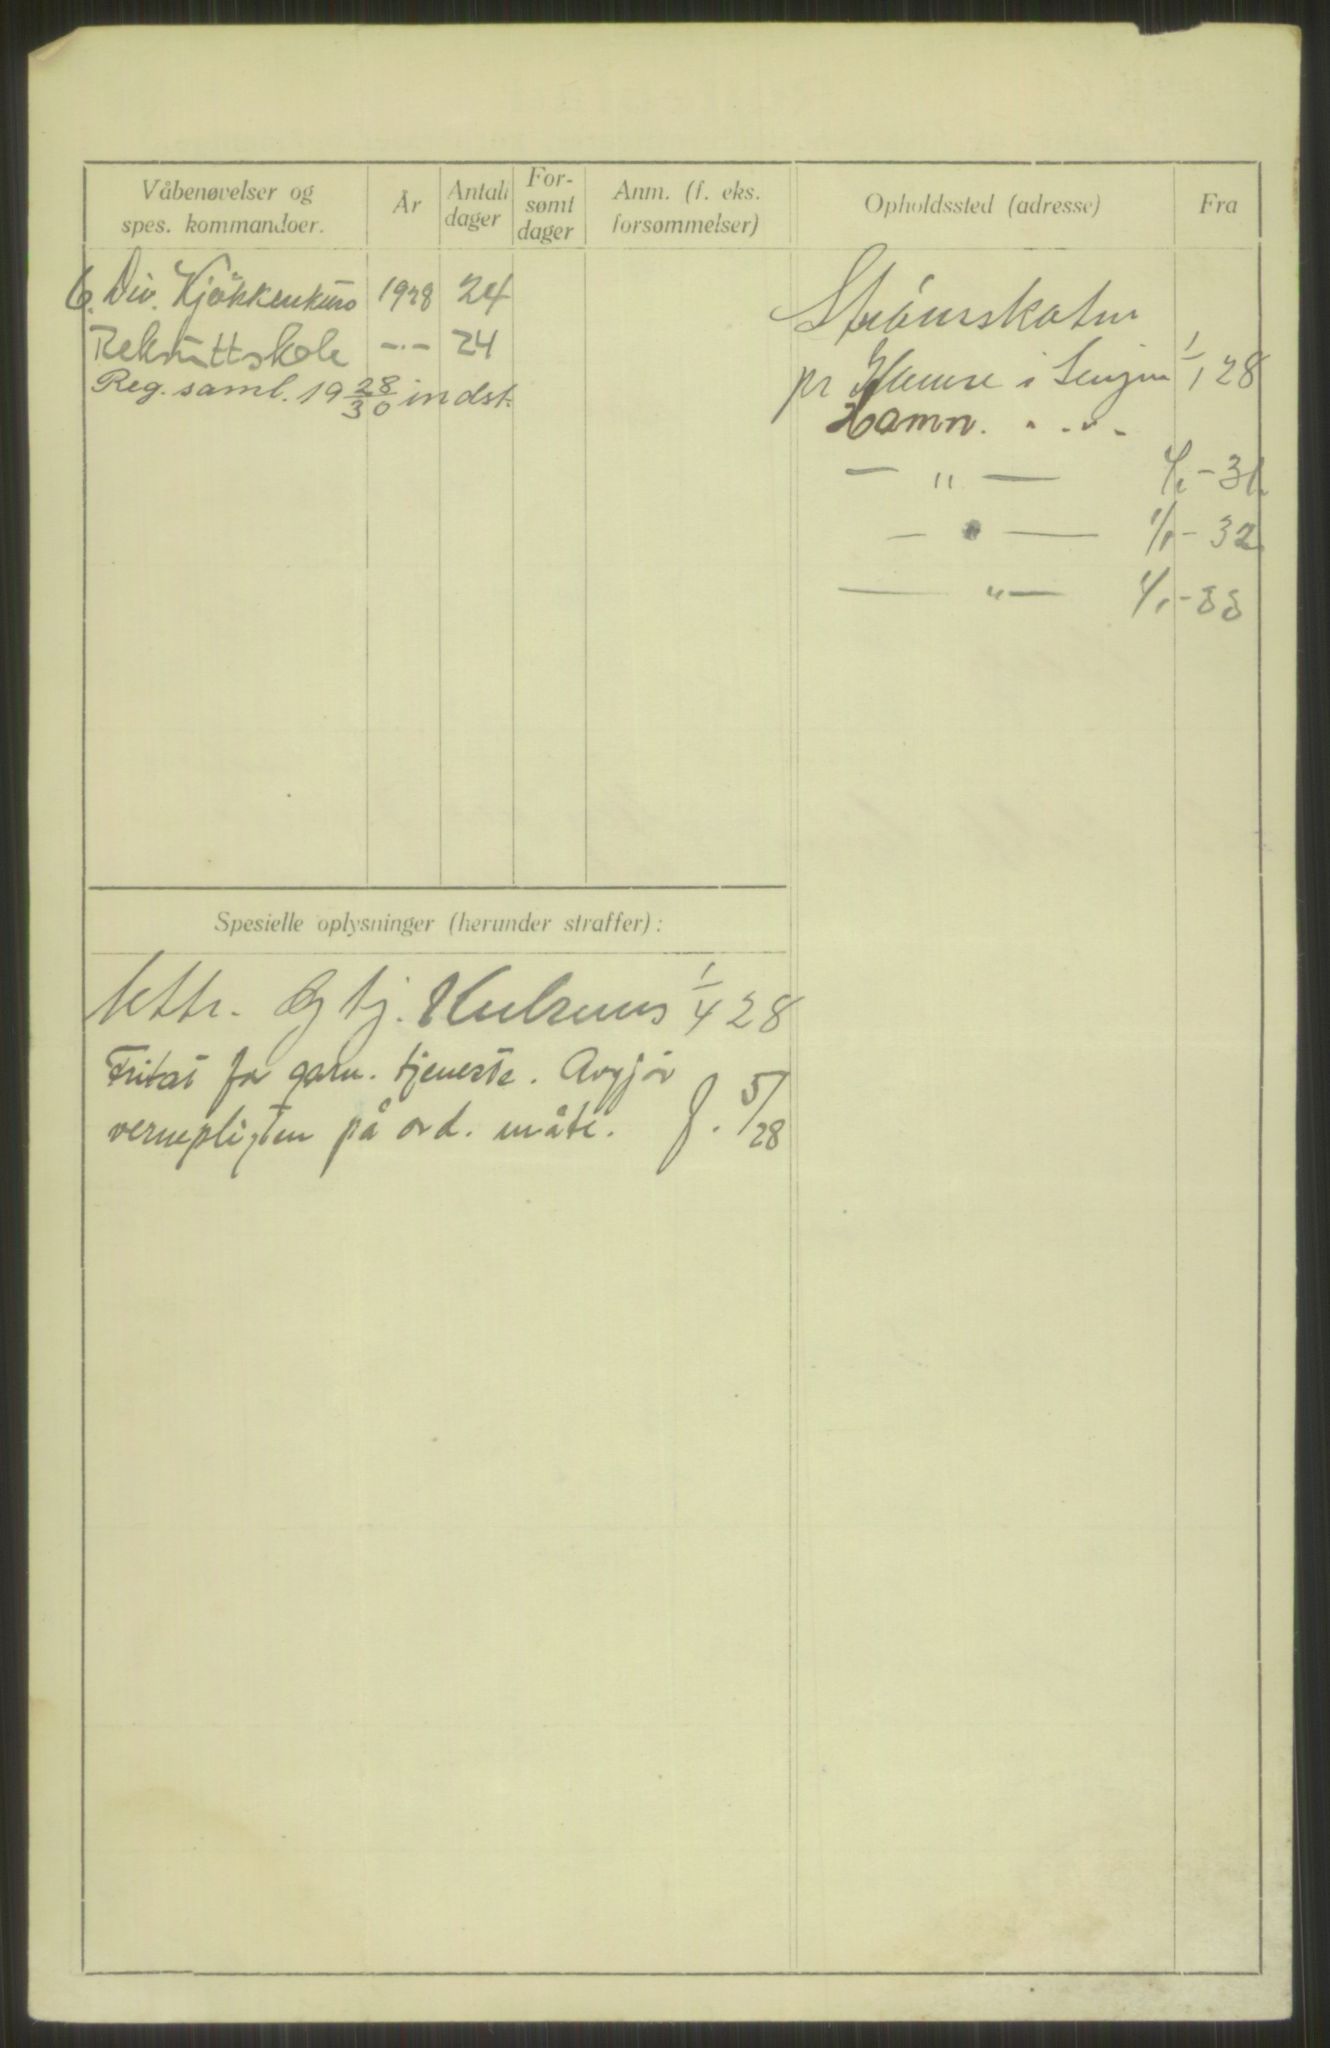 Våbenøvelser og
spes. kommandoer.
År
Antall
dager
For-
sømt
dager
Anm. (f. eks.
forsømmelser)
Opholdssted (adresse)
Fra
6. Div. Kjøkkenkurs 1928 24
Rekruttskole —·— 24
Reg. saml. 19 28/30 indst.
pr i Senjen 1/1 28
Hamn. - - - -
— " — 1/1 - 31.
— " — 1/1 - 32.
— " — 1/1 - 33
Spesielle oplysninger (herunder straffer):
1/4 28
Fritat for garn. tjeneste. Avgjör
vernepligten på ord. måte. J. 5/28